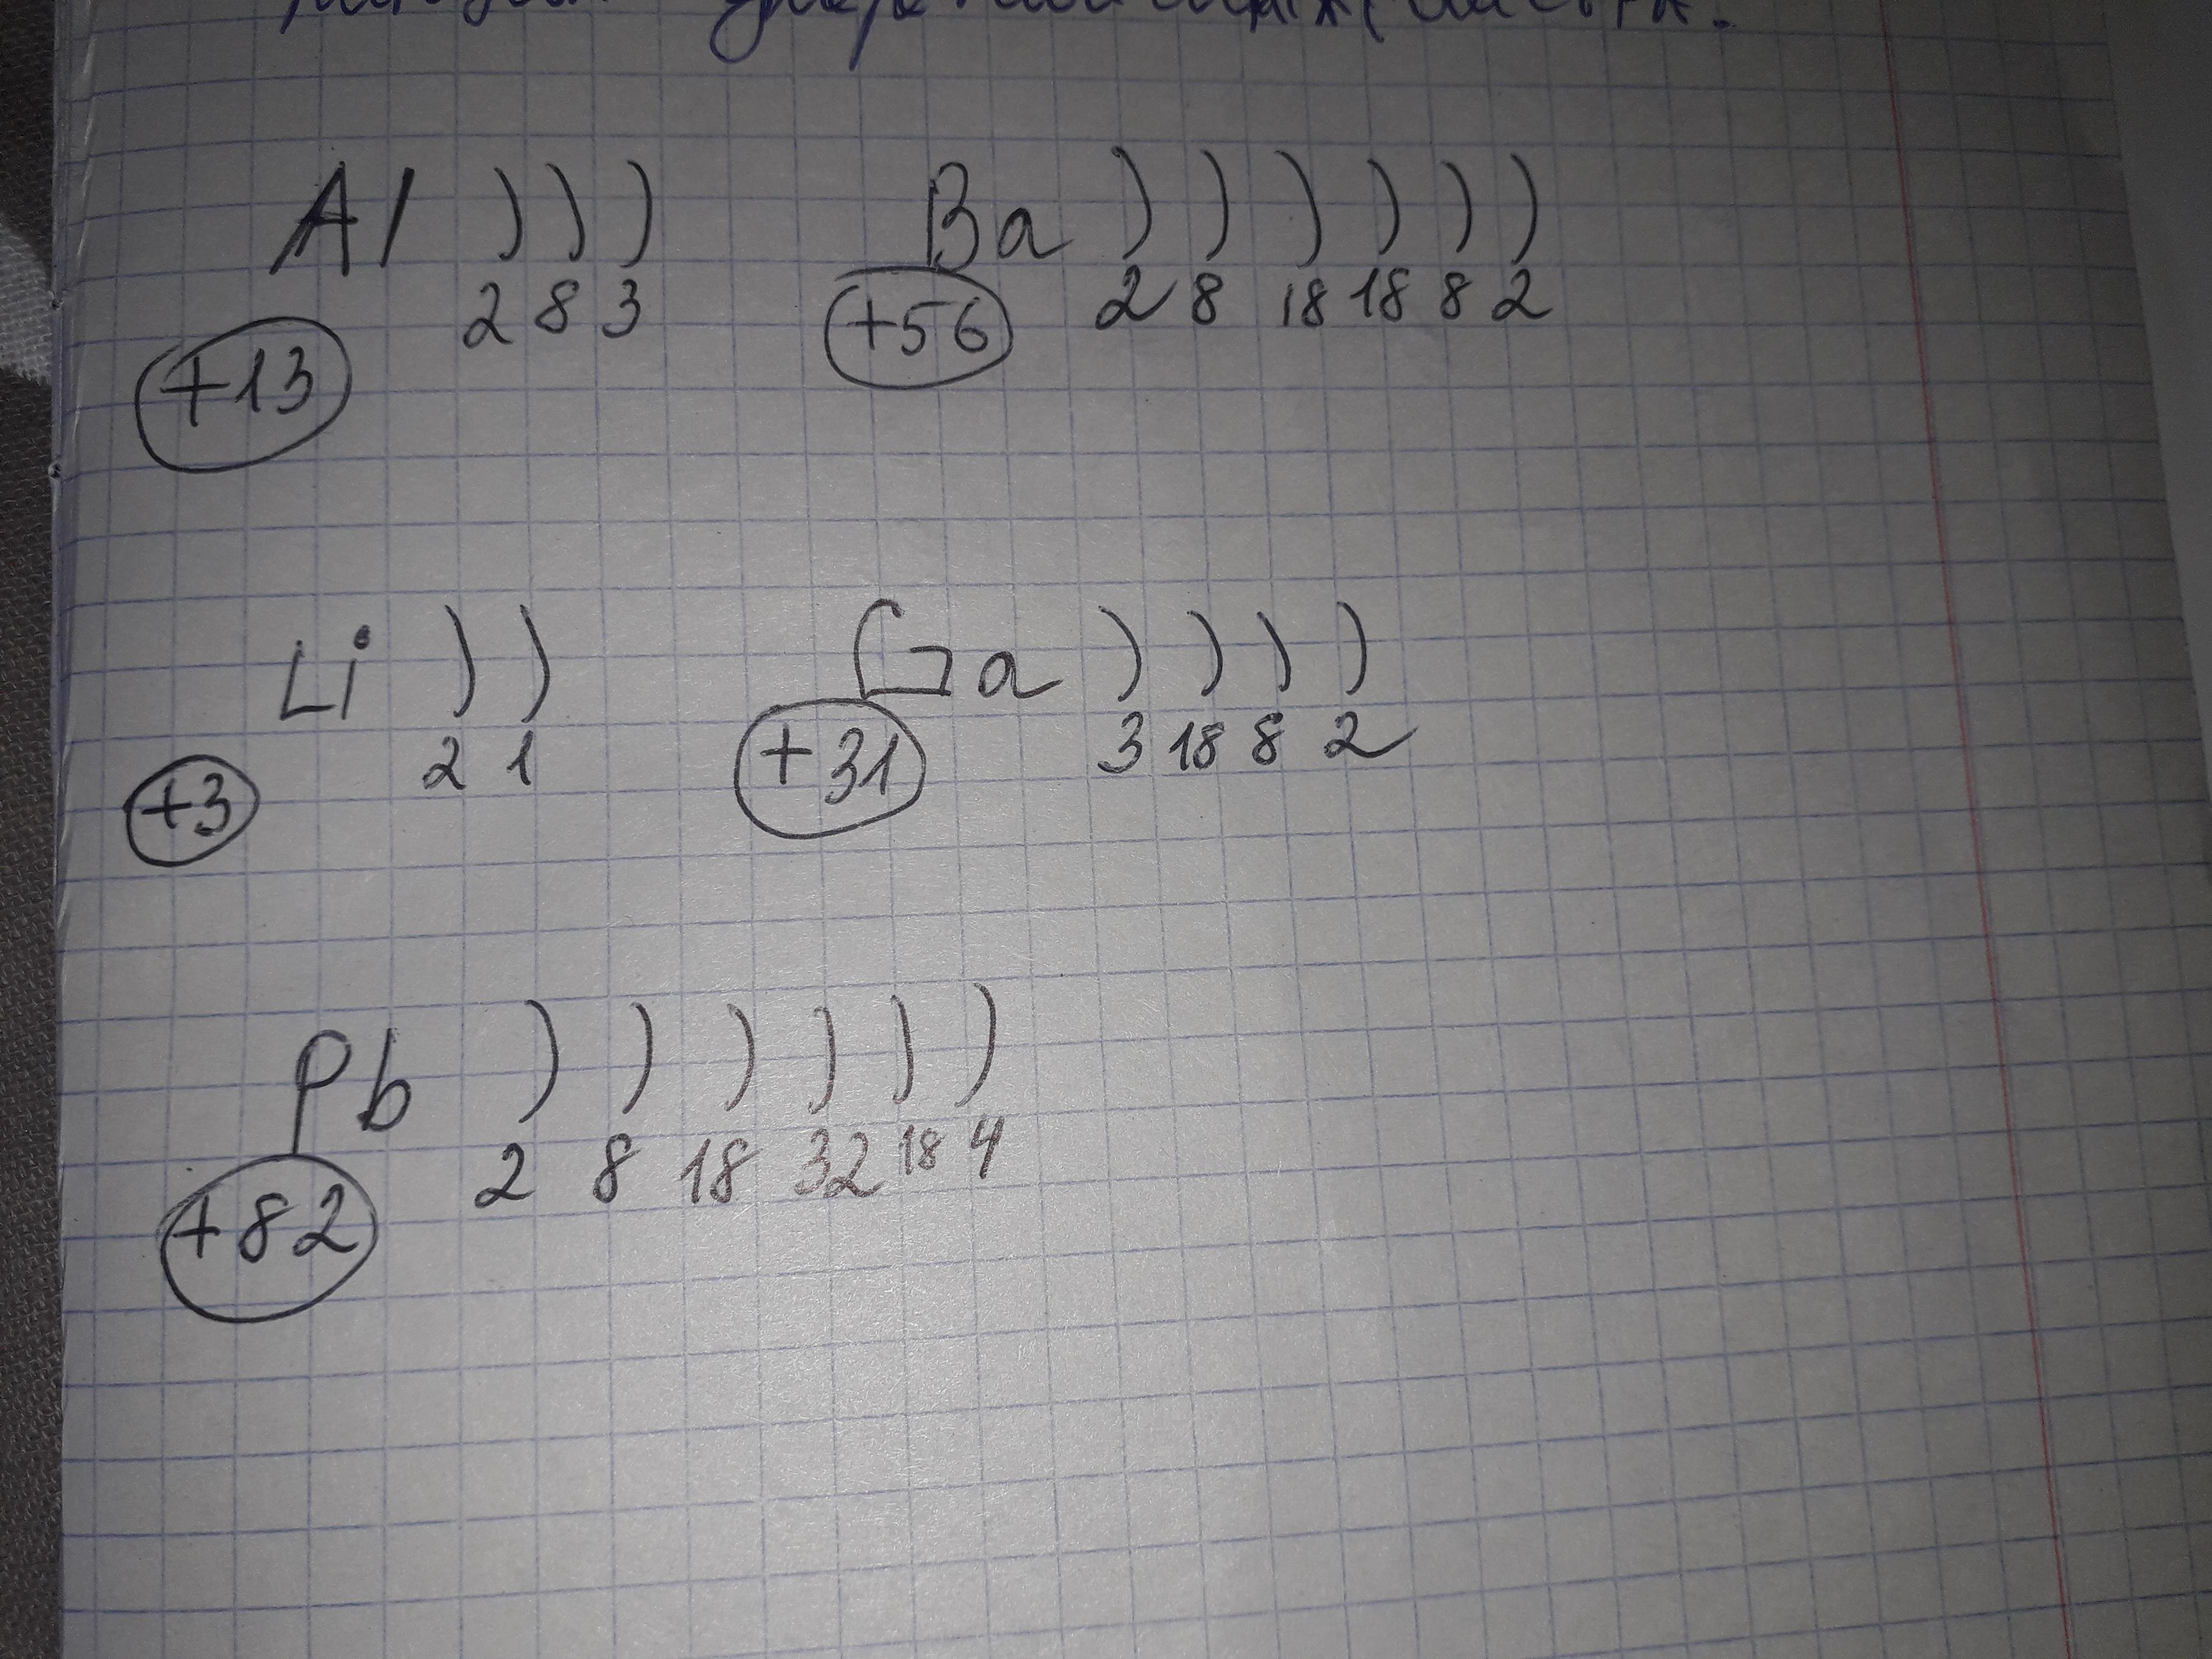 Al ) ) ) Ba ) ) ) ) ) )
+13 2 8 3 +56 2 8 18 18 8 2
Li ) ) Ga ) ) ) )
+3 2 1 +31 3 18 8 2
Pb ) ) ) ) ) )
+82 2 8 18 32 18 4